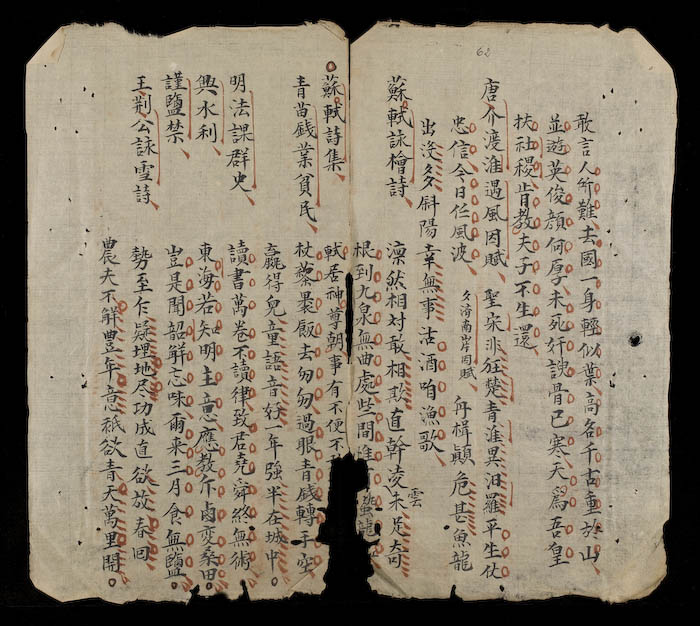 62
敢言人所難去國一身輕似葉高名千古重於山
並遊英俊顏何厚未死奸諛骨已寒天爲吾皇
扶社稷肯教夫子不生還
唐介渡淮遇風因賦 聖宋非狂楚青淮異汨羅平生仗
忠信今日任風波 夂濟南岸因賦 舟楫顛危甚魚龍
出没多斜陽幸無事沽酒咱漁歌
蘇軾詠檜詩 凜然相対敢相欺直幹凌雲未足奇
根到九泉無曲處些間惟 蟄龍
蘇軾詩集 軾居神尊朝事有不便不
青苗錢業貧民 杖藜褁飯去匆匆過眼青錢轉手空
嬴得兒童語音好一年強半在城中
明法課群吏 讀書萬卷不讀律致君堯舜終無術
興水利 東海若知明主意應教斥鹵変桑田
謹鹽禁 豈是聞韶觧忘味爾来三月食無鹽
王荆公詠雪詩 勢至乍疑埋地尽功成直欲放春回
農夫不觧豊年意衹欲青天萬里開